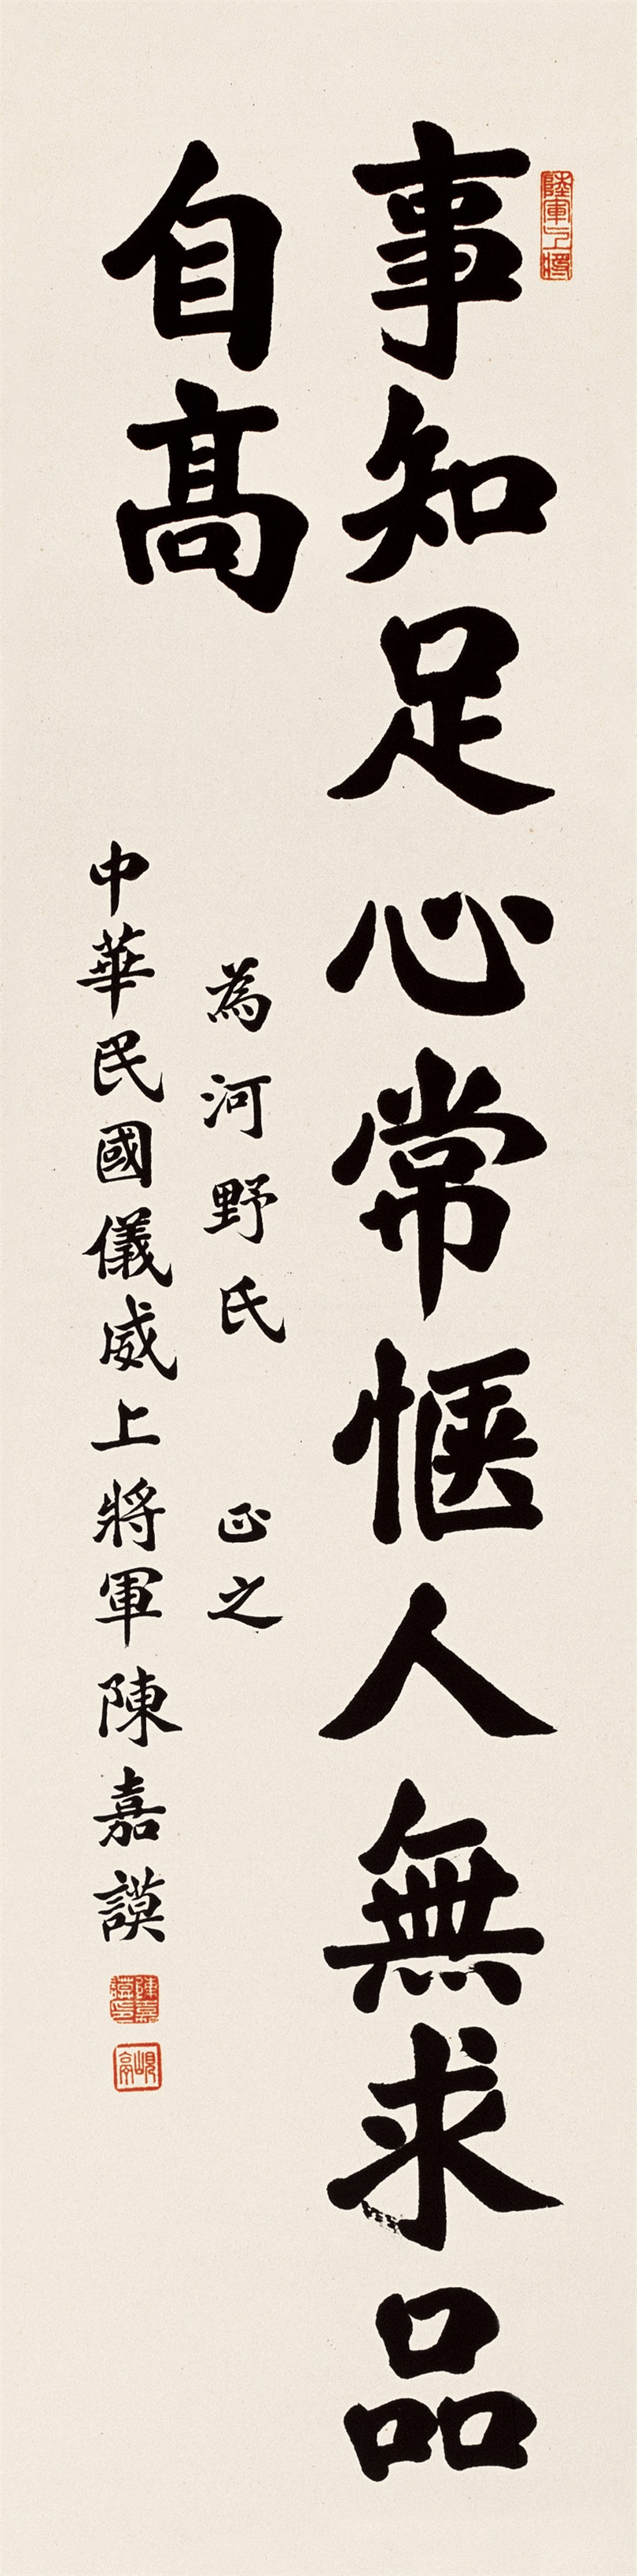 事知足心常惬人無求品
自髙
為河野氏 正之
中華民國儀威上將軍陳嘉謨
陸軍上將
陳嘉謨印